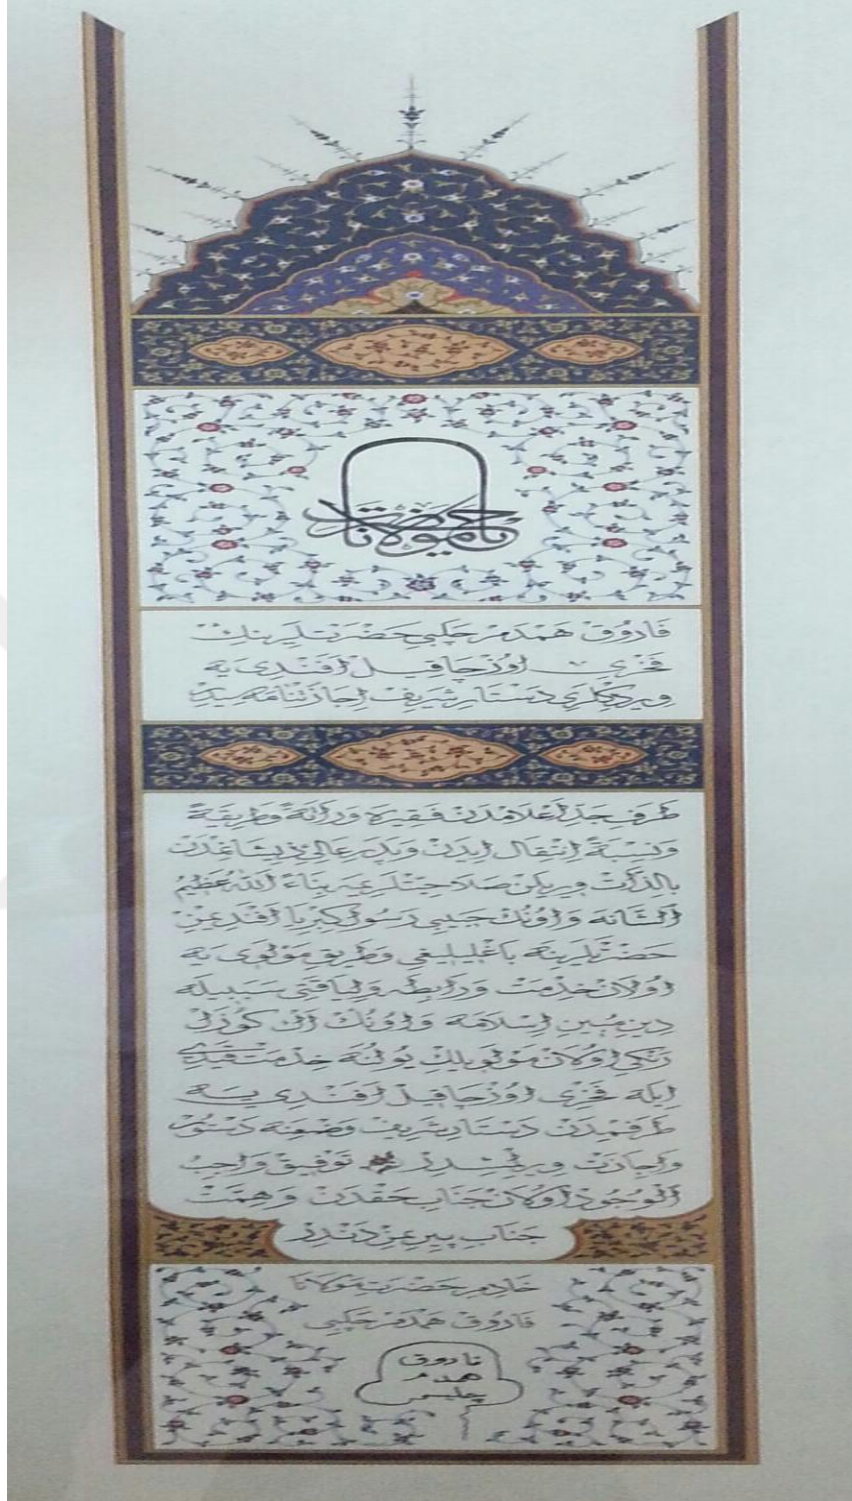 يا حضرت مولانا
فَارُوقْ هَمْدَمْ چَلَبِي حَضْرَتْلَرِينِكْ
فَخْرِي اُوزْچَاقِيلْ اَفَنْدِي يَه
وِيرْدِكْلَرِي دَسْتَارِ شَرِيفْ اِجَازَتْنَامَه سِيدِرْ
طَرَفِ جَدِّ اَعْلَامْدَنْ فَقِيرَه وَرَاثَةً وَطَرِيقَةً
وَنِسْبَةً اِنْتِقَالْ اِيدَنْ وَپَدَرِ عَالِي ذِيشَانِمْدَنْ
بِالذَّاتْ وِيرِيلَنْ صَلَاحِيَتْلَرِمَه بِنَاءً اَللّٰهُ عَظِيمُ
اَلشَّانَه وَاُونُكْ حَبِيبِي رَسُولِ كِبْرِيَا اَفَنْدِمِزْ
حَضْرَتْلَرِينَه بَاغْلِيلِيغِي وَطَرِيقِ مَوْلَوِي يَه
اُولَانْ خِدْمَتْ وَرَابِطَه وَلِيَاقَتِي سَبَبِيلَه
دِينِ مُبِينِ اِسْلَامَه وَاُونُكْ اَڭ كُوزَلْ
رَنْكِي اُولَانْ مَوْلَوِيلِكْ يُولُنَه خِدْمَتْ قَيْدِي
اِيلَه فَخْرِي اُوزْچَاقِيلْ اَفَنْدِي يَه
طَرَفِمْدَنْ دَسْتَارِ شَرِيفْ وَضْعِنَه دَسْتُورْ
وَاِجَازَتْ وِيرِلْمِشْدِرْ تَوْفِيقْ وَاجِبُ
اَلْوُجُودْ اُولَانْ جَنَابِ حَقْدَنْ وَهِمَّتْ
جَنَابِ پِيرِمِزْدَنْدِرْ
خَادِمِ حَضْرَتِ مَوْلَانَا
فَارُوقْ هَمْدَمْ چَلَبِي
فاروق
همدم
چلبی